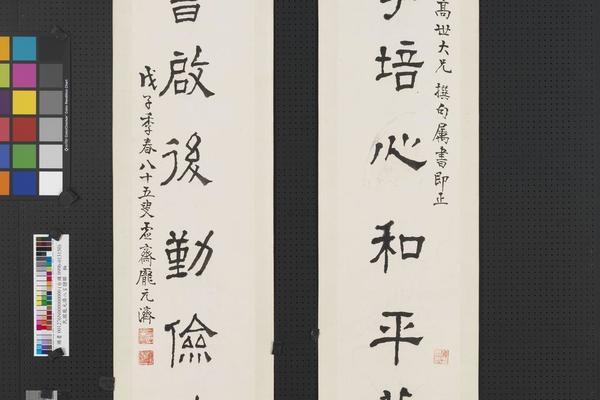 高世大兄 撰句属書即正
培心和平
啟後勤儉
戊子季春八十五叟虛齋龐元濟